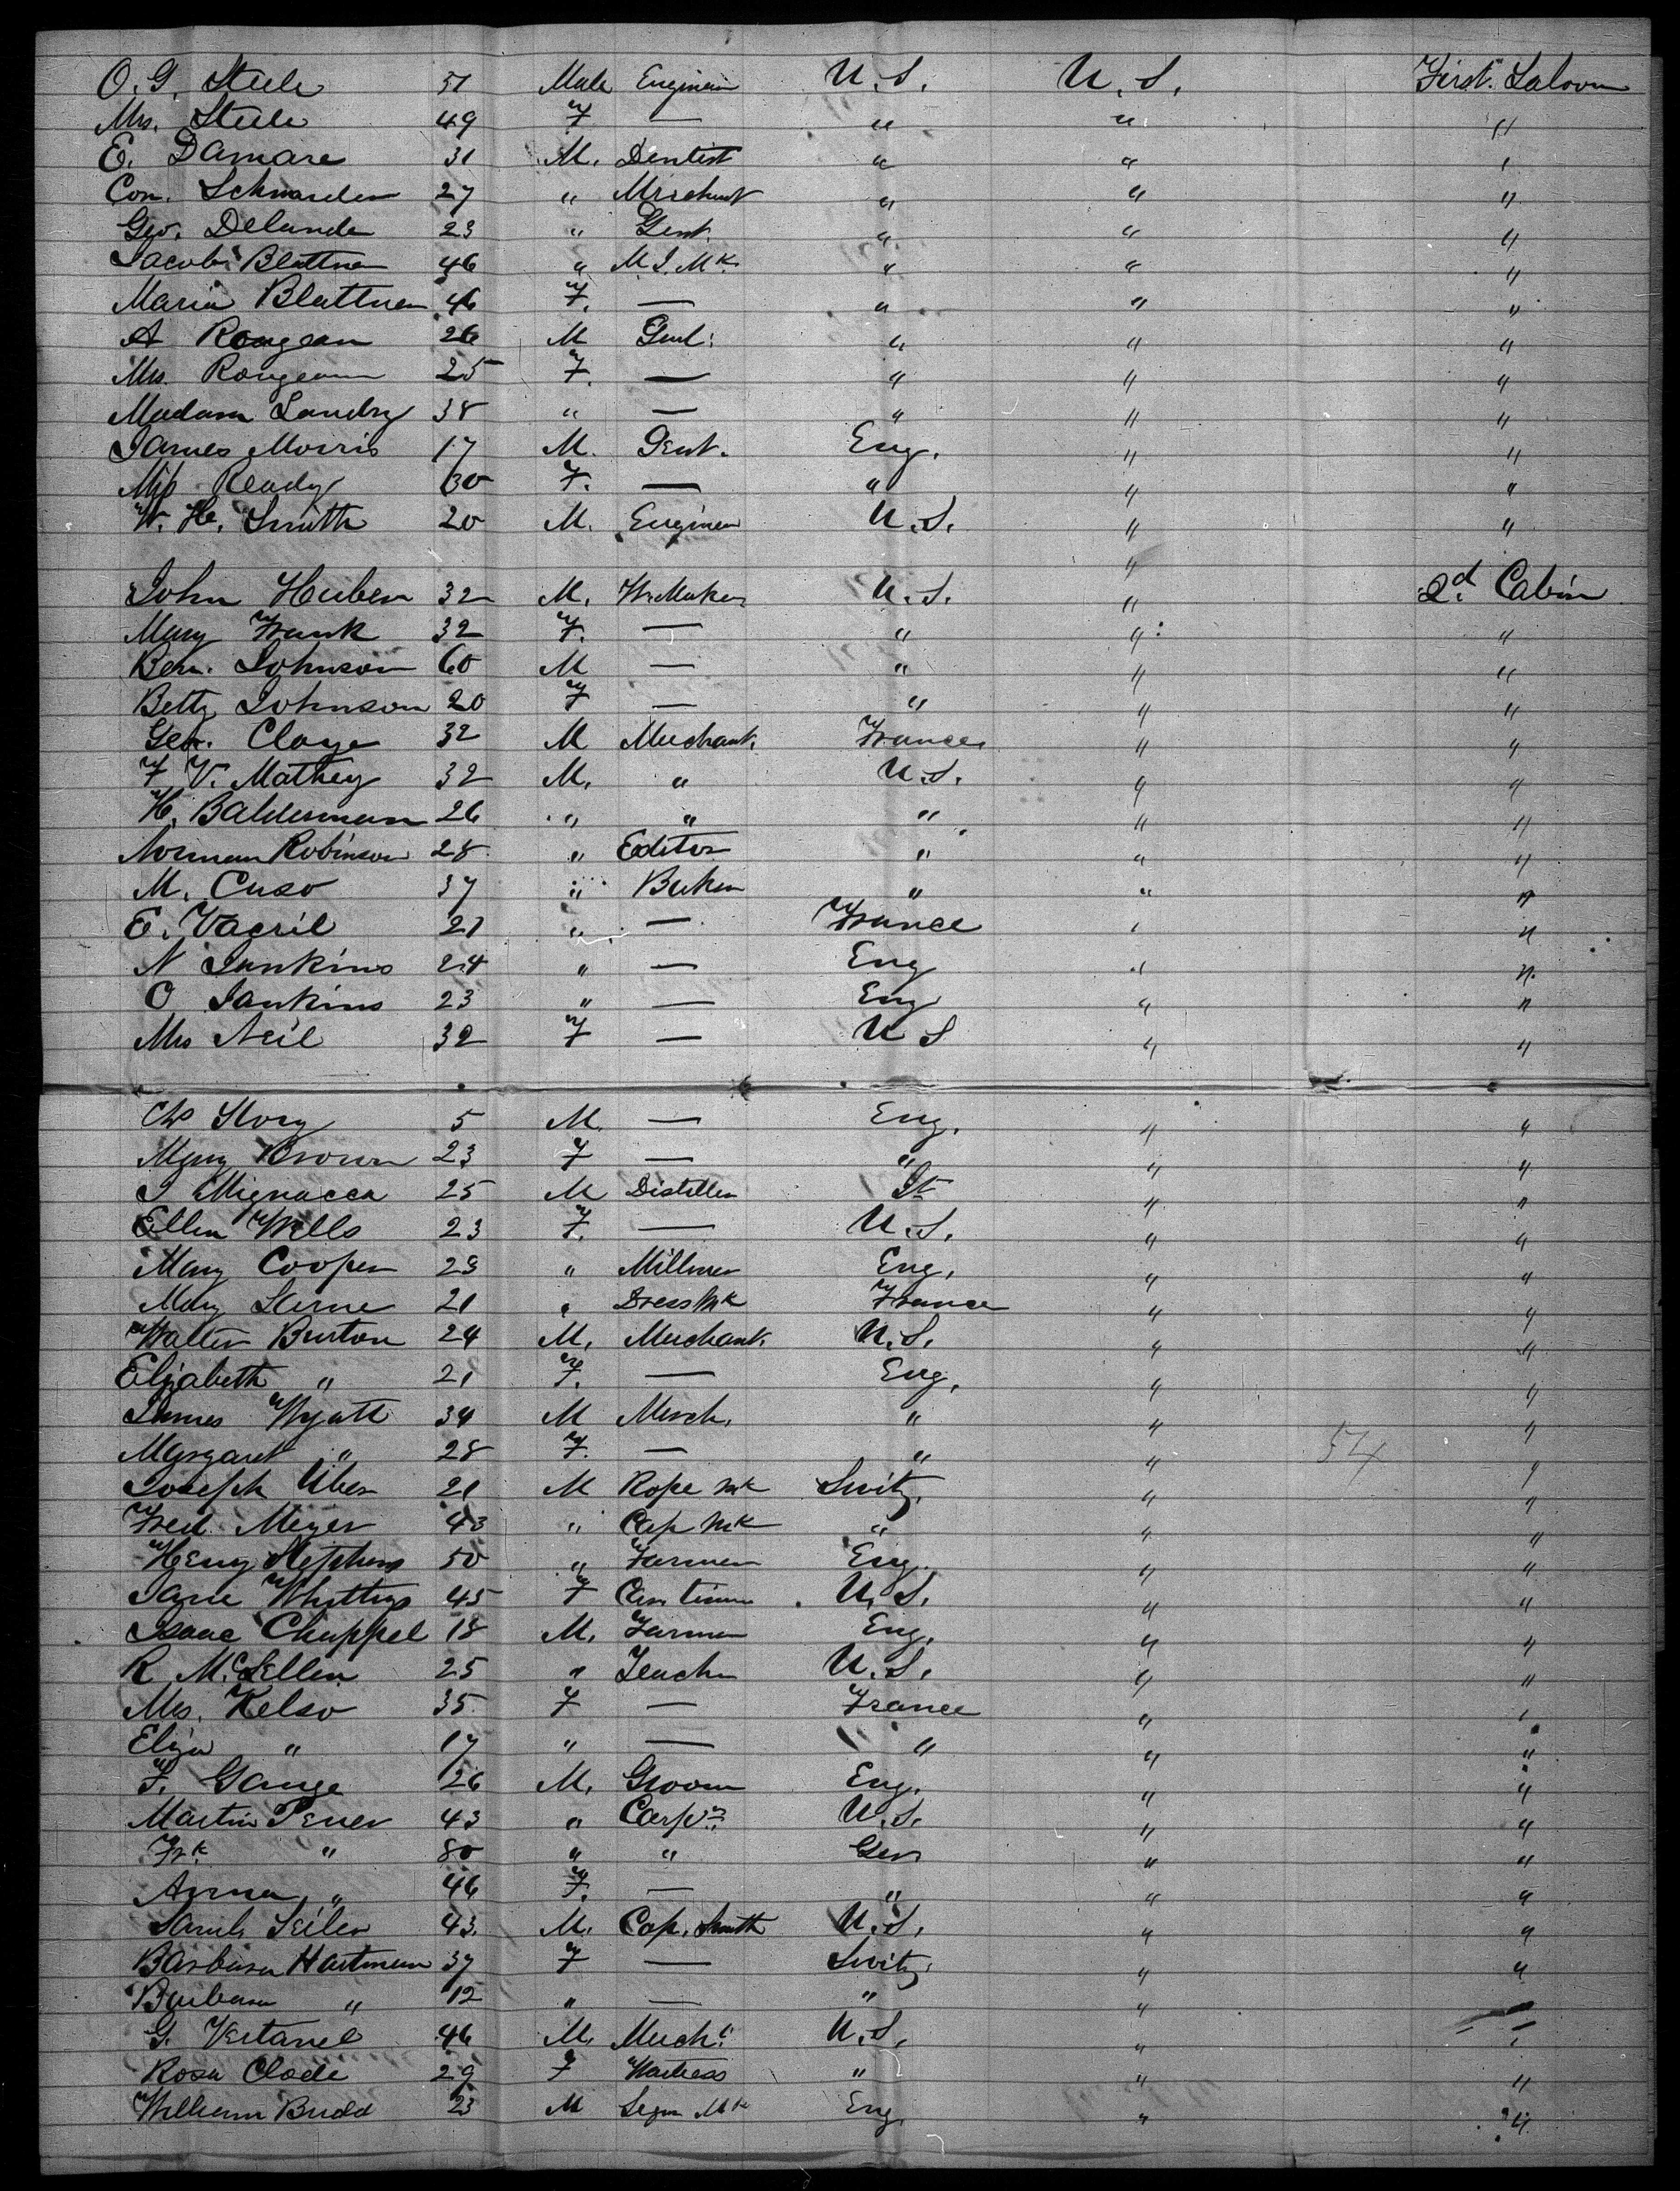 O. G. Steele 51 Male Engineer U.S. U.S. First Saloon
Mrs. Steele 49 F — " " "
E. Damare 31 M. Dentist " " "
Con. 27 " Merchant " " "
Geo. Delande 23 " Gent. " " "
Jacob Blattner 46 " M. I. Mk. " " "
Maria Blattner 46 F. — " " "
A Rougeau 26 M Gent: " " "
Mrs. Rougeau 25 F. — " " "
Madam Landry 38 " — " " "
James Morris 17 M. Gent. Eng. " "
Miss Ready 30 F. — " " "
W. H. Smith 20 M. Engineer U.S. " "
"
John Huber 32 M. U.S. " 2d. Cabin
Mary Frank 32 F. — " " "
Ben. Johnson 60 M — " " "
Betty Johnson 20 F — " " "
Geo. Claye 32 M Merchant. France " "
F V. Mathey 32 M. " U.S. " "
H. Balderman 26 " " " " "
Norman Robinson 28 " Editor " " "
M. Cuso 37 " Baker " " "
E. Vacril 21 " — France " "
N Jankins 24 " — Eng " "
O Jankins 23 " — Eng " "
Mrs Neil 32 F — U S " "
Chs Story 5 M. — Eng. " "
Mary Brown 23 F — " " "
J Mignacca 25 M Distiller It " "
Ellen Wells 23 F. — U.S. " "
Mary Cooper 23 " Milliner Eng. " "
Mary Sterne 21 " Dress Mk France " "
Walter Burton 24 M. Merchant. U.S. " "
Elizabeth " 21 F. — Eng. " "
James Wyatt 34 M Merch. " " "
Margaret " 28 F. — " " 54 "
Joseph Uber 21 M Rope Mk Switz. " "
Fred. Meyer 43 " Cap Mk " " "
Henry Stephens 50 " Farmer Eng. " "
Jane 45 F U.S. " "
Isaac Chappel 18 M. Farmer Eng. " "
R McLellen 25 " Teacher U.S. " "
Mrs. Kelso 35 F — France " "
Eliza " 17 " — " " "
F. Gange 26 M. Groom Eng. " "
Martin Perrer 43 " Carpr. U.S. " "
Frk. " 80 " " Ger " "
Anna " 46 F. — " " "
Saml. Seiler 43. M. Cop. Smith U.S. " "
Barbara Hartman 37 F — Switz. " "
Barbara " 12 " — " " "
G. Vertanel 46 M. Mercht. U.S. " "
Rosa Clode 29 F Waitress " " "
William Budd 23 M Segar Mk Eng. " "